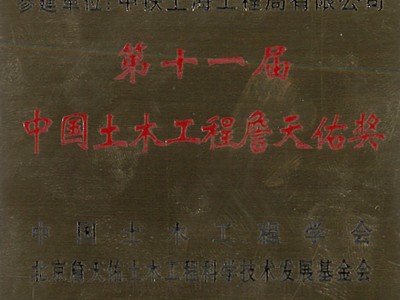 参建单位:中铁上海工程局有限公司
第十一届
中国土木工程詹天佑奖
中国土木工程学会
北京詹天佑土木工程科学技术发展基金会